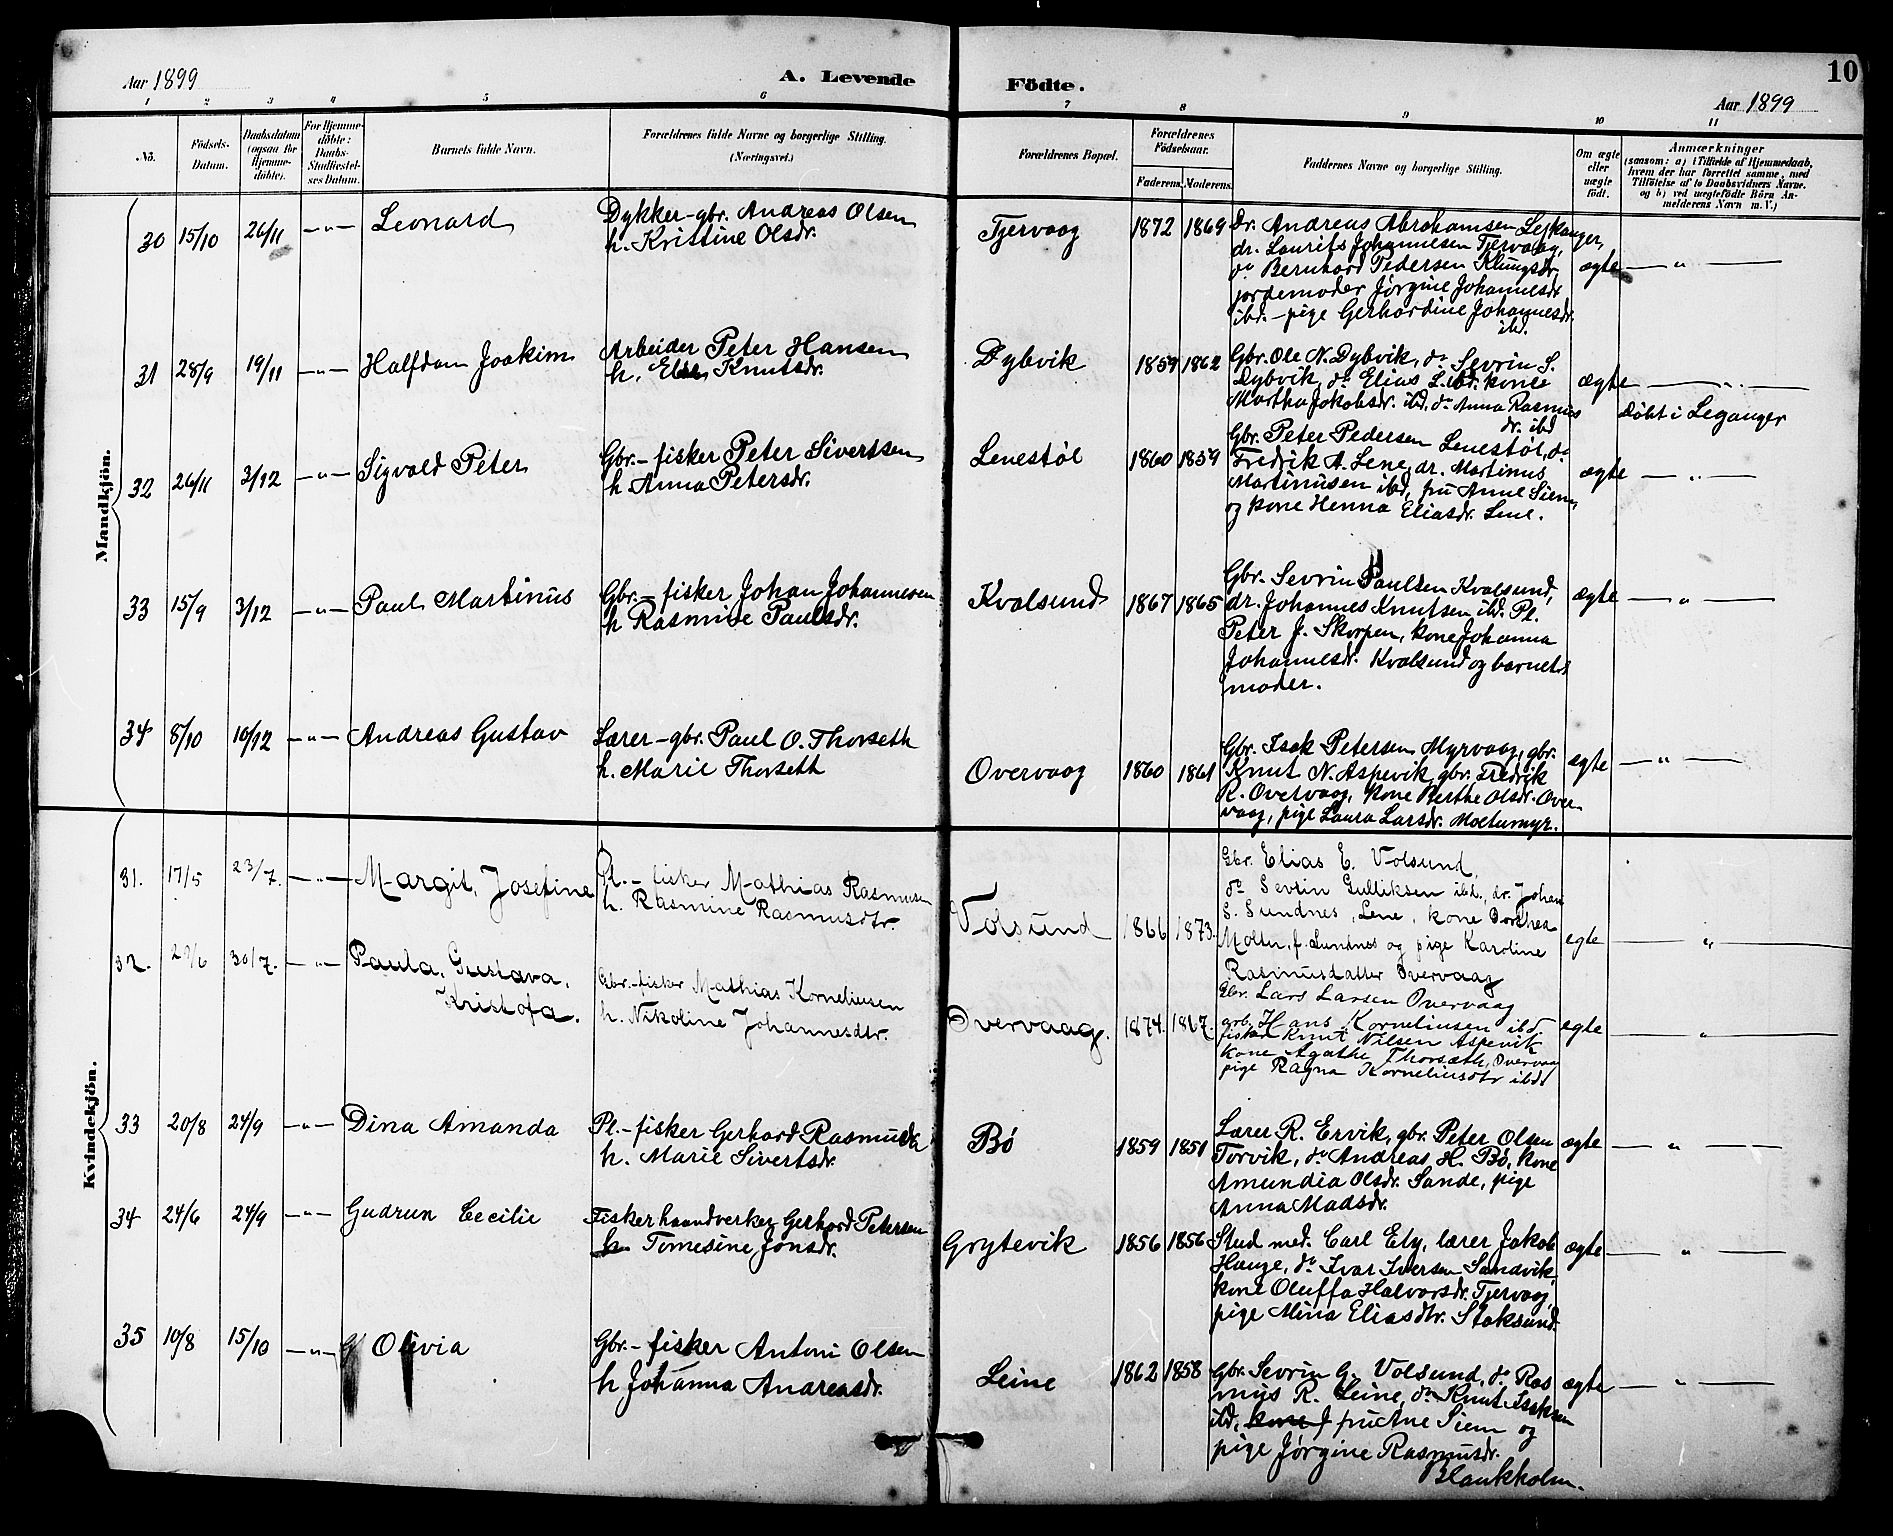 Aar 1899
A. Levende
Födte.
Aar 1899
10
1 2 3 4 5 6 7 8 9 10 11
No.
Födsels-
Datum.
Daabsdatum
(ogsaa for
Hjemme-
döbte).
For Hjemme-
döbte:
Daabs-
Stadfæstel-
ses Datum.
Barnets fulde Navn.
Forældrenes fulde Navne og borgerlige Stilling.
(Næringsvei.)
Forældrenes Bopæl.
Forældrenes
Födselsaar.
Faderens. Moderens.
Faddernes Navne og borgerlige Stilling.
Om ægte
eller
uægte
födt.
Anmærkninger
(saasom: a) i Tilfælde af Hjemmedaab,
hvem der har forrettet samme, med
Tilföielse af to Daabsvidners Navne.
og b) ved uægtefödte Börn An-
melderens Navn m. V.)
Mandkjön.
30 15/10 26/11 — " — Leonard
Dykker-gbr. Andreas Olsen
h. Kristine Olsdr.
Tjervaag 1872 1869
Dr. Andreas Abrahamsen Leikanger,
dr. Laurits Johannesen Tjervaag,
do Bernhard Pedersen Klungsdr,
jordemoder Jørgine Johannesdr
ibd. - pige Gerhardine Johannesdr.
ibd.
ægte — " —
31 28/9 19/11 — " — Halfdan Joakim
Arbeider Peter Hansen
h. Knutsdr.
Dybvik 1859 1862
Gbr. Ole N. Dybvik, do Sevrin S.
Dybvik, do Elias L. ibd. kone
Martha Jakobsdr. ibd, do Anna Rasmus
dr. ibd
ægte — " —
Døbt i Leganger
32 26/11 3/12 — " — Sigvald Peter
Gbr.- fisker Peter Sivertsen
h Anna Petersdr.
Lenestøl 1860 1859
Gbr. Peter Pedersen Lenestøl, do
Fredrik A. Lene, dr. Martinus
Martinusen ibd, fru Anne Siem,
og kone Henna Eliasdr. Lene.
ægte — " —
33 15/9 3/12 — " — Paul Martinus
Gbr.- fisker Johan Johannesen
h Rasmine Paulsdr.
Kvalsund 1867 1865
Gbr. Sevrin Paulsen Kvalsund,
dr. Johannes Knutsen ibd. Pl.
Peter J. Skorpen, kone Johanna
Johannesdr. Kvalsund og barnets
moder.
ægte — " —
34 8/10 10/12 — " — Andreas Gustav
Lærer-gbr. Paul O. Thorseth
h. Marie Thorseth
Overvaag 1860 1861
Gbr. Isak Petersen Myrvaag, gbr.
Knut N. Aspevik, gbr. Fredrik
R. Overvaag, kone Berthe Olsdr. Over-
vaag, pige Laura Larsdr. Moltumyr.
egte — " —
Kvindekjön.
31. 17/5 23/7. — " — Margit, Josefine
Pl.- fisker Mathias Rasmusen
h. Rasmine Rasmusdtr.
Volsund 1866 1873.
Gbr. Elias E. Volsund,
do Sevrin Gulliksen ibd., dr. Johan
S. Sundnes, Lene, kone Dorthea
Molter, f. Sundnes og pige Karoline
Rasmusdatter Overvaag
egte — " —
32. 30/7. — " — Paula, Gustava,
Kristofa.
Gbr.-fisker Mathias Korneliusen
h. Nikoline Johannesdtr.
Overvaag. 1874.
Gbr. Lars Larsen Overvaag
grb. Hans Korneliusen ibd.
fisker Knut Nilsen Aspevik
kone Agathe Thorsæth, Overvaag
pige Ragna Korneliusdtr ibd
egte — " —
33 20/8 24/9 — " — Dina Amanda
Pl.-fisker Gerhard Rasmusen
h. Marie Sivertsdr.
Bø 1859 1851
Lærer R. Ervik, gbr. Peter Olsen
Torvik, do Andreas H. Bø, kone
Amundia Olsdr. Sande, pige
Anna Madsdr.
ægte — " —
34 24/6 24/9 — " — Gudrun Cecilie
Fisker haandverker Gerhard Petersen
h. Tomesine Jonsdr.
Grytevik 1856 1856
Stud med. Carl Ely, lærer Jakob
Hauge, do Ivar Iversen Sandvik,
kone Oluffa Halvorsdr. Tjervaag,
pige Mina Eliasdtr. Stoksund.
ægte — " —
35 10/8 15/10 — " — Olivia
Gbr.- fisker Antoni Olsen
h Johanna Andreasdr.
Leine 1862 1858
Gbr. Sevrin G. Volsund, do Ras
mus R. Leine, do Knut Isaksen
ibd, kone f fru Ane Siem og
pige Jørgine Rasmusdr.
Blankholm.
ægte — " —